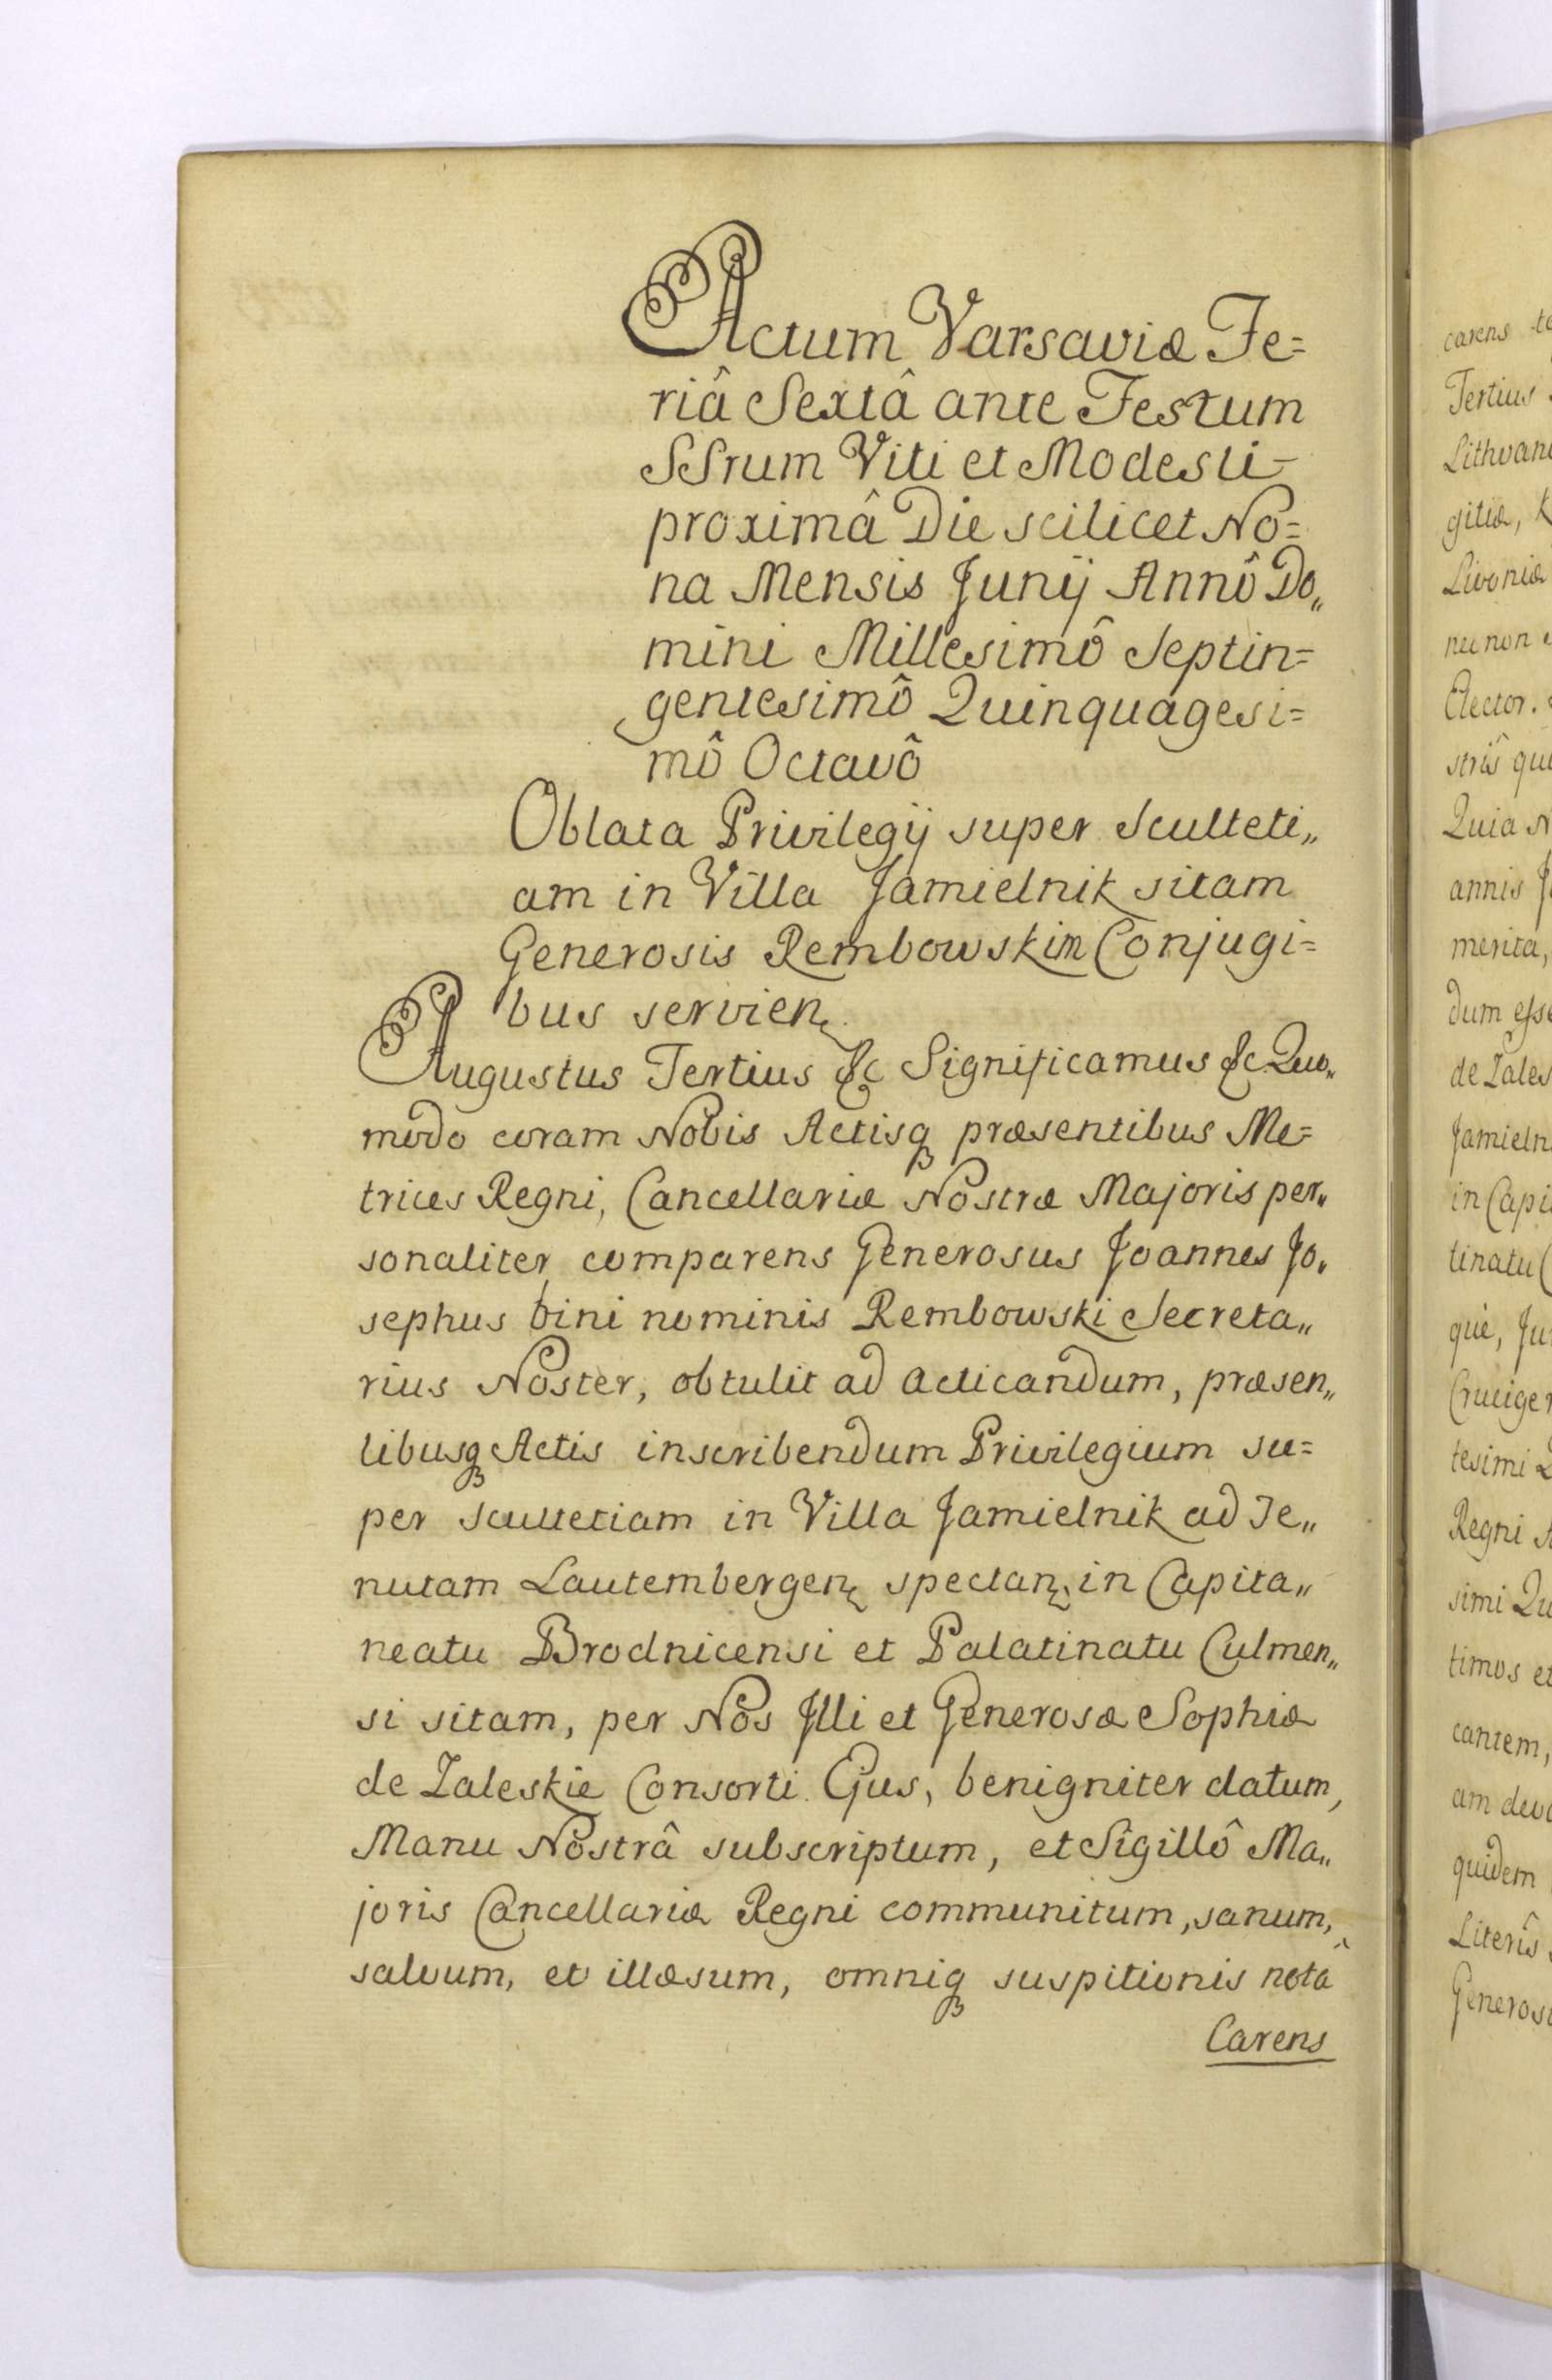 Actum Varsaviæ Fe=
riâ Sextâ ante Festum
SSrum Viti et Modesti
proximâ Die scilicet No=
na Mensis Junij Annô Do„
mini Millesimô Septin=
gentesimô Quinquagesi=
mô Octavô
Oblata Privilegij super Sculteti„
am in Villa Jamielnik sitam
Generosis Rembowskim Conjugi=
bus servien
Augustus Tertius &c Significamus &c Quo„
modo coram Nobis Actisq præsentibus Me=
trices Regni, Cancellariæ Nostræ Majoris per„
sonaliter comparens Generosus Joannes Jo„
sephus bini nominis Rembowski Secreta„
rius Noster, obtulit ad acticandum, præsen„
tibusq Actis inscribendum Privilegium su=
per scultetiam in Villa Jamielnik ad Te„
nutam Lautembergen spectan, in Capita„
neatu Brodnicensi et Palatinatu Culmen„
si sitam, per Nos Illi et Generosæ Sophiæ
de Zaleskie Consorti Ejus, benigniter datum,
Manu Nostrâ subscriptum, et Sigillô Ma„
joris Cancellariæ Regni communitum, sanum,
salvum, et illæsum, omniq suspitionis notâ
Carens
carens
Tertius
Lithvan
gitiæ, K
Livoniæ
necnon
Elector.
strîs qui
Quia N
annis J
merita,
dum esse
de Zales
Jamieln
in Capi
tinatu C
què, Ju
Cruciger
tesimi
Regni
simi Qu
timus et
cantem,
am devo
quidem
Literîs
Generos